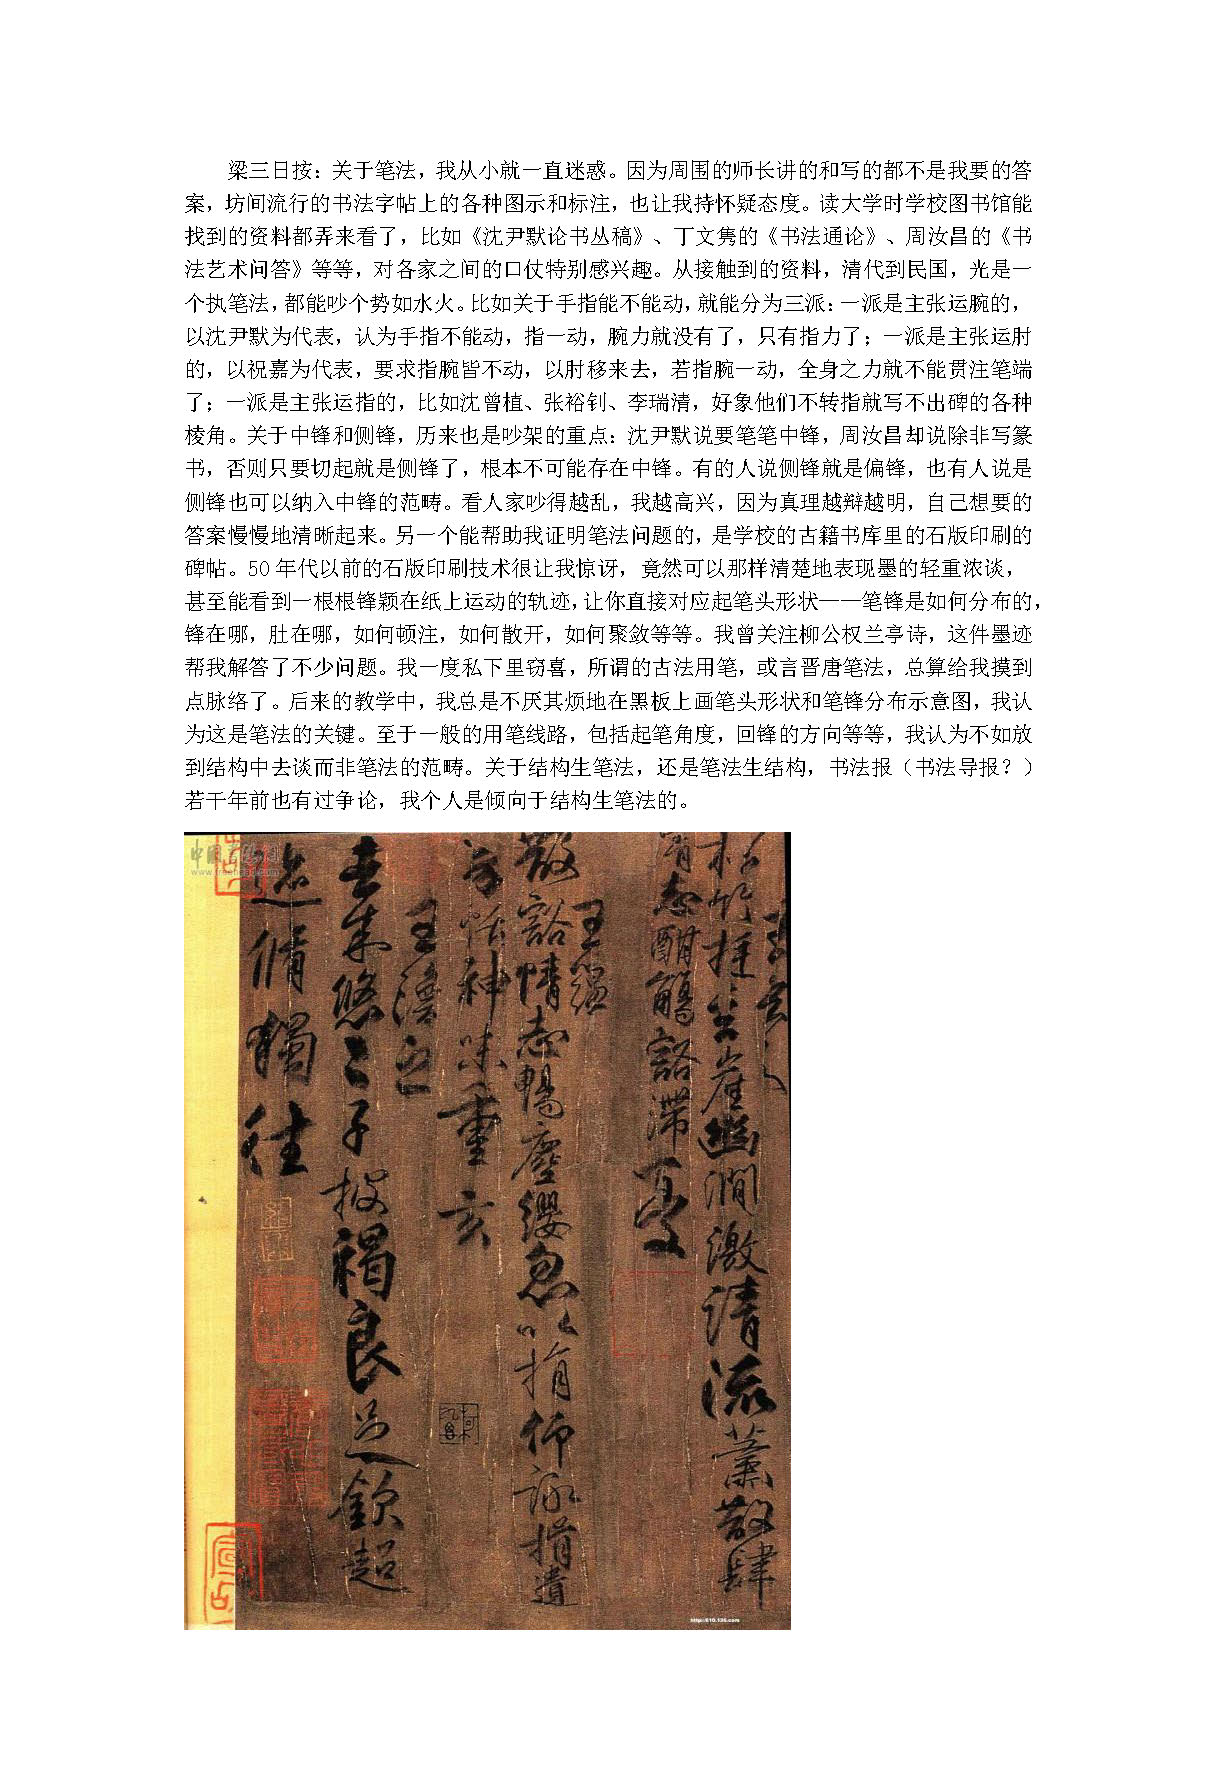 梁三日按：关于笔法，我从小就一直迷惑。因为周围的师长讲的和写的都不是我要的答
案，坊间流行的书法字帖上的各种图示和标注，也让我持怀疑态度。读大学时学校图书馆能
找到的资料都弄来看了，比如《沈尹默论书丛稿》、丁文隽的《书法通论》、周汝昌的《书
法艺术问答》等等，对各家之间的口仗特别感兴趣。从接触到的资料，清代到民国，光是一
个执笔法，都能吵个势如水火。比如关于手指能不能动，就能分为三派：一派是主张运腕的，
以沈尹默为代表，认为手指不能动，指一动，腕力就没有了，只有指力了；一派是主张运肘
的，以祝嘉为代表，要求指腕皆不动，以肘移来去，若指腕一动，全身之力就不能贯注笔端
了；一派是主张运指的，比如沈曾植、张裕钊、李瑞清，好象他们不转指就写不出碑的各种
棱角。关于中锋和侧锋，历来也是吵架的重点：沈尹默说要笔笔中锋，周汝昌却说除非写篆
书，否则只要切起就是侧锋了，根本不可能存在中锋。有的人说侧锋就是偏锋，也有人说是
侧锋也可以纳入中锋的范畴。看人家吵得越乱，我越高兴，因为真理越辩越明，自己想要的
答案慢慢地清晰起来。另一个能帮助我证明笔法问题的，是学校的古籍书库里的石版印刷的
碑帖。50 年代以前的石版印刷技术很让我惊讶，竟然可以那样清楚地表现墨的轻重浓谈，
甚至能看到一根根锋颖在纸上运动的轨迹，让你直接对应起笔头形状——笔锋是如何分布的，
锋在哪，肚在哪，如何顿注，如何散开，如何聚敛等等。我曾关注柳公权兰亭诗，这件墨迹
帮我解答了不少问题。我一度私下里窃喜，所谓的古法用笔，或言晋唐笔法，总算给我摸到
点脉络了。后来的教学中，我总是不厌其烦地在黑板上画笔头形状和笔锋分布示意图，我认
为这是笔法的关键。至于一般的用笔线路，包括起笔角度，回锋的方向等等，我认为不如放
到结构中去谈而非笔法的范畴。关于结构生笔法，还是笔法生结构，书法报（书法导报？）
若干年前也有过争论，我个人是倾向于结构生笔法的。
松竹挺巖崖幽澗激清流蕭散肆
情志酣觴豁滯憂
王蘊
散豁情志暢塵纓忽以捐仰詠挹遺
芳怡神味重玄
王渙之
去來悠〻子披褐良足欽超
迹脩獨往